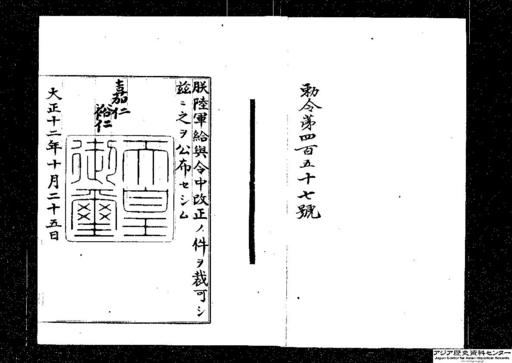 勅令第四百五十七號
朕陸軍給與令中改正ノ件ヲ裁可シ
茲ニ之ヲ公布セシム
嘉仁
裕仁
天皇
御璽
大正十二年十月二十五日
アジア歴史資料センター
Japan Center for Asian Historical Records